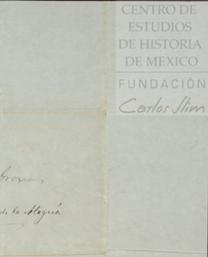 CENTRO DE
ESTUDIOS
DE HISTORIA
DE MEXICO
FUNDACIÓN
Carlos Slim
de la Alegría